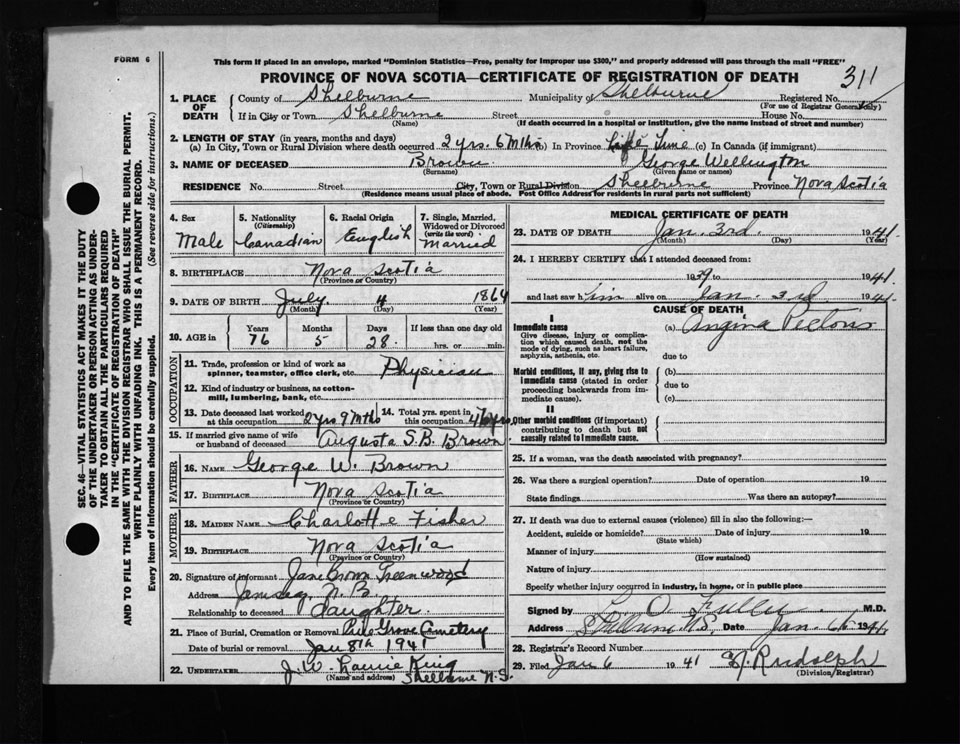 FORM 6
This form if placed in an envelope, marked "Dominion Statistics—Free, penalty for improper use $300," and properly addressed will pass through the mail "FREE"
PROVINCE OF NOVA SCOTIA—CERTIFICATE OF REGISTRATION OF DEATH
311
1. PLACE OF DEATH
County of Shelburne Municipality of Shelburne Registered No.
(For use of Registrar General only)
If in City or Town Shelburne Street House No.
(Name) (If death occurred in a hospital or institution, give the name instead of street and number)
2. LENGTH OF STAY (in years, months and days)
(a) In City, Town or Rural Division where death occurred 2 yrs. 6 Mths (b) In Province Life Time (c) In Canada (if immigrant)
3. NAME OF DECEASED Brown George Wellington
(Surname) (Given name or names)
RESIDENCE No. Street City, Town or Rural Division Shelburne Province Nova Scotia
(Residence means usual place of abode. Post Office Address for residents in rural parts not sufficient)
4. Sex Male
5. Nationality (Citizenship) Canadian
6. Racial Origin English
7. Single, Married, Widowed or Divorced (write the word) Married
8. BIRTHPLACE Nova Scotia
(Province or Country)
9. DATE OF BIRTH July 4 1864
(Month) (Day) (Year)
10. AGE in Years Months Days If less than one day old
76 5 28 hrs. or min.
OCCUPATION
11. Trade, profession or kind of work as spinner, teamster, office clerk, etc. Physician
12. Kind of industry or business, as cotton-mill, lumbering, bank, etc.
13. Date deceased last worked at this occupation 2 yrs 9 Mths
14. Total yrs. spent in this occupation
15. If married give name of wife or husband of deceased Augusta S.B. Brown
FATHER
16. NAME George W. Brown
17. BIRTHPLACE Nova Scotia
(Province or Country)
MOTHER
18. MAIDEN NAME Charlotte Fisher
19. BIRTHPLACE Nova Scotia
(Province or Country)
20. Signature of informant Jane Brown Greenwood
Address Jemseg, N.B.
Relationship to deceased daughter.
21. Place of Burial, Cremation or Removal Pine Grove Cemetery
Date of burial or removal Jan 8th 1941
22. UNDERTAKER J. W. Laurie King
(Name and address) Shelburne N.S.
MEDICAL CERTIFICATE OF DEATH
23. DATE OF DEATH Jan. 3rd. 1941.
(Month) (Day) (Year)
24. I HEREBY CERTIFY that I attended deceased from:
1939 to 1941
and last saw him alive on Jan. 3rd 1941.
CAUSE OF DEATH
I
Immediate cause
Give disease, injury or complication which caused death, not the mode of dying, such as heart failure, asphyxia, asthenia, etc.
(a) Angina Pectoris
due to
Morbid conditions, if any, giving rise to immediate cause (stated in order proceeding backwards from immediate cause).
(b)
due to
(c)
II
Other morbid conditions (if important) contributing to death but not causally related to immediate cause.
25. If a woman, was the death associated with pregnancy?
26. Was there a surgical operation? Date of operation 19
State findings Was there an autopsy?
27. If death was due to external causes (violence) fill in also the following:—
Accident, suicide or homicide? Date of injury 19
(State which)
Manner of injury
(How sustained)
Nature of injury
Specify whether injury occurred in industry, in home, or in public place
Signed by L. O. Fuller M.D.
Address Shelburne N.S. Date Jan. 6th 1941.
28. Registrar's Record Number
29. Filed Jan 6 1941 Rudolph
(Division Registrar)
SEC. 46—VITAL STATISTICS ACT MAKES IT THE DUTY
OF THE UNDERTAKER OR PERSON ACTING AS UNDER-
TAKER TO OBTAIN ALL THE PARTICULARS REQUIRED
IN THE "CERTIFICATE OF REGISTRATION OF DEATH"
AND TO FILE THE SAME WITH THE DIVISION REGISTRAR WHO SHALL ISSUE THE BURIAL PERMIT.
WRITE PLAINLY WITH UNFADING INK. THIS IS A PERMANENT RECORD.
Every item of Information should be carefully supplied. (See reverse side for instructions.)